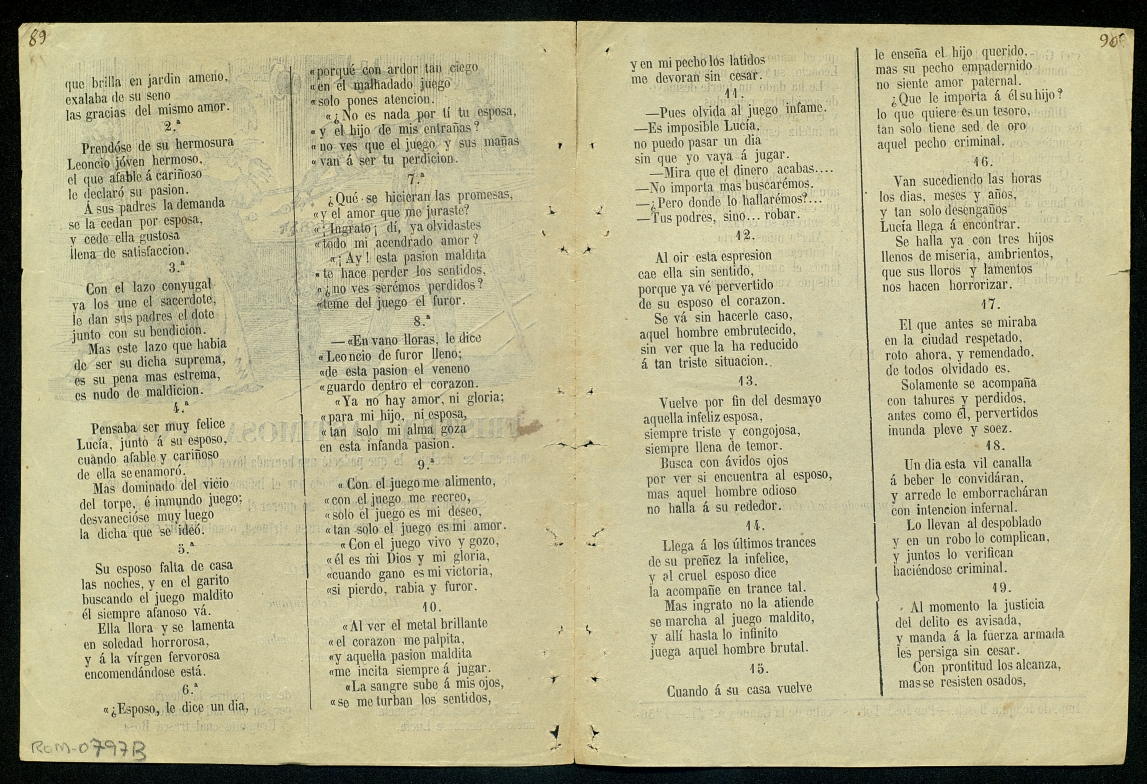 89
que brilla en jardin ameno,
exalaba de su seno
las gracias del mismo amor.
2.ª
Prendóse de su hermosura
Leoncio jóven hermoso,
el que afable á cariñoso
le declaró su pasion.
Á sus padres la demanda
se la cedan por esposa,
y cede ella gustosa
llena de satisfaccion.
3.ª
Con el lazo conyugal
ya los une el sacerdote,
le dan sus padres el dote
junto con su bendicion.
Mas este lazo que habia
de ser su dicha suprema,
es su pena mas estrema,
es nudo de maldicion.
4.ª
Pensaba ser muy felice
Lucía, junto á su esposo,
cuando afable y cariñoso
de ella se enamoró.
Mas dominado del vicio
del torpe, é inmundo juego;
desvanecióse muy luego
la dicha que se ideó.
5.ª
Su esposo falta de casa
las noches, y en el garito
buscando el juego maldito
él siempre afanoso vá.
Ella llora y se lamenta
en soledad horrorosa,
y á la vírgen fervorosa
encomendándose está.
6.ª
«¿Esposo, le dice un dia,
«porqué con ardor tan ciego
«en el malhadado juego
«solo pones atencion.
«¿No es nada por tí tu esposa,
«y el hijo de mis entrañas?
«no ves que el juego y sus mañas
«van á ser tu perdicion.
7.ª
¿Qué se hicieran las promesas,
«y el amor que me juraste?
«¡Ingrato¡ dí, ya olvidastes
«todo mi acendrado amor?
«¡Ay! esta pasion maldita
«te hace perder los sentidos,
«¿no ves serémos perdidos?
«teme del juego el furor.
8.ª
—«En vano lloras, le dice
«Leoncio de furor lleno;
«de esta pasion el veneno
«guardo dentro el corazon.
«Ya no hay amor, ni gloria;
«para mi hijo, ni esposa,
«tan solo mi alma goza
en esta infanda pasion.
9.ª
«Con el juego me alimento,
«con el juego me recreo,
«solo el juego es mi deseo,
«tan solo el juego es mi amor.
«Con el juego vivo y gozo,
«él es mi Dios y mi gloria,
«cuando gano es mi victoria,
«si pierdo, rabia y furor.
10.
«Al ver el metal brillante
«el corazon me palpita,
«y aquella pasion maldita
«me incita siempre á jugar.
«La sangre sube á mis ojos,
«se me turban los sentidos,
ROM-0797B
90
y en mi pecho los latidos
me devoran sin cesar.
11.
—Pues olvida al juego infame.
—Es imposible Lucía,
no puedo pasar un dia
sin que yo vaya á jugar.
—Mira que el dinero acabas....
—No importa mas buscarémos.
—¿Pero donde lo hallarémos?...
—Tus padres, sino... robar.
12.
Al oir esta espresion
cae ella sin sentido,
porque ya vé pervertido
de su esposo el corazon.
Se vá sin hacerle caso,
aquel hombre embrutecido,
sin ver que la ha reducido
á tan triste situacion.
13.
Vuelve por fin del desmayo
aquella infeliz esposa,
siempre triste y congojosa,
siempre llena de temor.
Busca con ávidos ojos
por ver si encuentra al esposo,
mas aquel hombre odioso
no halla á su rededor.
14.
Llega á los últimos trances
de su preñez la infelice,
y al cruel esposo dice
la acompañe en trance tal.
Mas ingrato no la atiende
se marcha al juego maldito,
y allí hasta lo infinito
juega aquel hombre brutal.
15.
Cuando á su casa vuelve
le enseña el hijo querido,
mas su pecho empadernido
no siente amor paternal.
¿Que le importa á él su hijo?
lo que quiere es un tesoro,
tan solo tiene sed de oro
aquel pecho criminal.
16.
Van sucediendo las horas
los dias, meses y años,
y tan solo desengaños
Lucía llega á encontrar.
Se halla ya con tres hijos
llenos de miseria, ambrientos,
que sus lloros y lamentos
nos hacen horrorizar.
17.
El que antes se miraba
en la ciudad respetado,
roto ahora, y remendado,
de todos olvidado es.
Solamente se acompaña
con tahures y perdidos,
antes como él, pervertidos
inunda pleve y soez.
18.
Un dia esta vil canalla
á beber le convidáran,
y arrede le emborracháran
con intencion infernal.
Lo llevan al despoblado
y en un robo lo complican,
y juntos lo verifican
haciéndose criminal.
19.
Al momento la justicia
del delito es avisada,
y manda á la fuerza armada
les persiga sin cesar.
Con prontitud los alcanza,
mas se resisten osados,